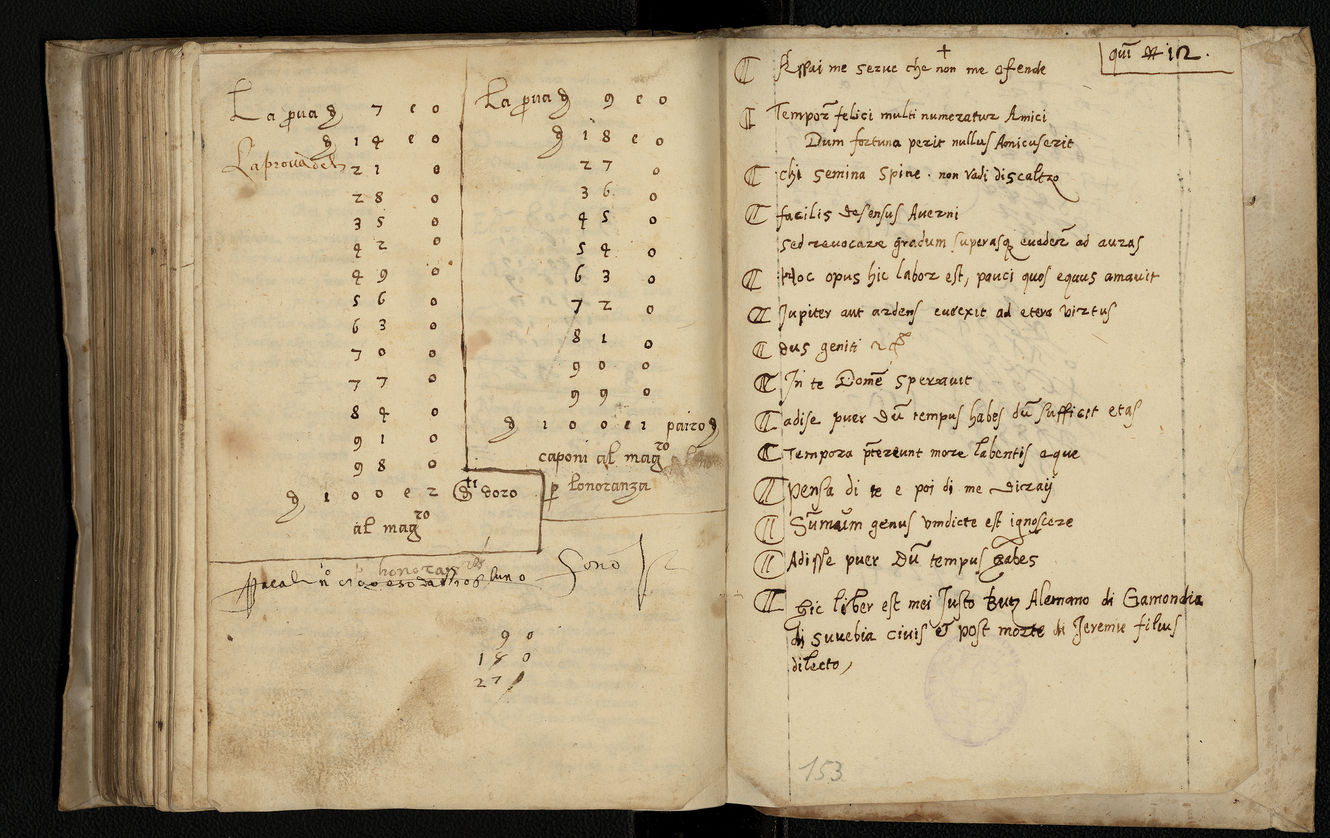 La prova di 7 e 0
di 14 e 0
La prova del 21 0
28 0
35 0
42 0
49 0
56 0
63 0
70 0
77 0
84 0
91 0
98 0
di 100 e 2 doro
al mag.ro
La prova di 9 e 0
di 18 e 0
27 0
36 0
45 0
54 0
63 0
72 0
81 0
90 0
99 0
di 100 e 1 pairo di
caponi al mag.ro
p lonoranza
honoran
Sono
9 0
18 0
27
+
12.
Assai me serve che non me ofende
Tempor felici multi numeratur Amici
Dum fortuna perit nullus Amicus erit
chi semina spine. non vadi discaltzo
facilis desensus Averni
sed revocare gradum superasq evader ad auras
Hoc opus hic labor est, pauci quos equus amavit
Jupiter aut ardens evexit ad etera virtus
dus geniti
In te Dome speravit
adise puer dū tempus habes dū sufficit etas
Tempora ptereunt more labentis aque
Pensa di te e poi di me diraij
Sūmum genus vindicte est ignoscere
Adisse puer Dū tempus habes
hic liber est mei Justo Butz Alemano di Gamondia
di Suvebia civis & post morte di Jeremie filius
dilecto,
153